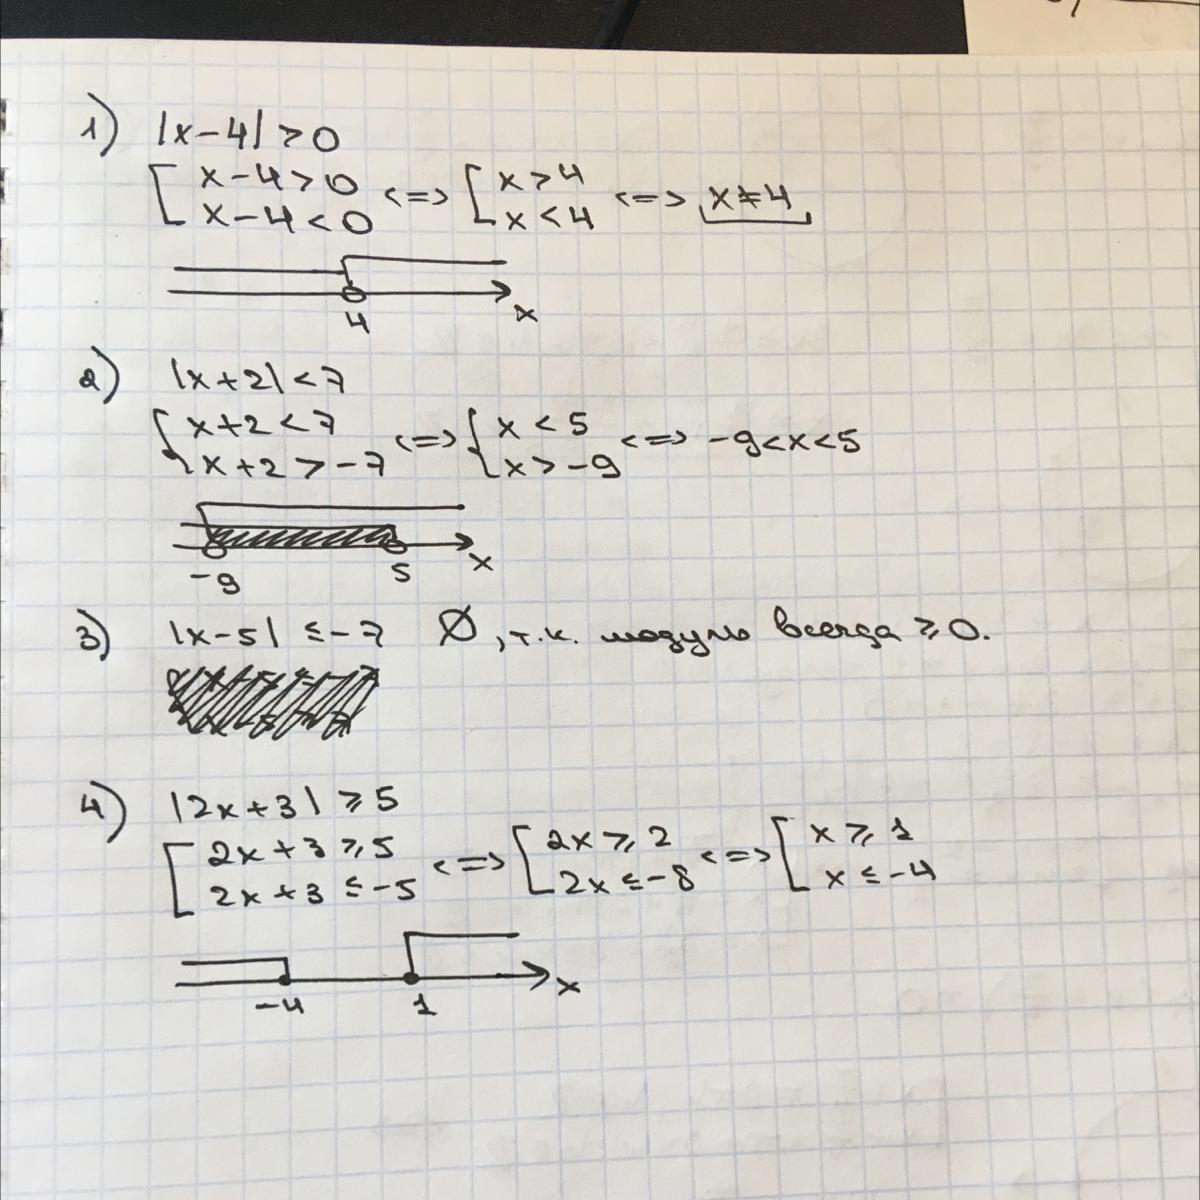 1) |x-4| > 0
[ x-4>0 <=> [ x>4 <=> x≠4
x-4<0 x<4
4 x
2) |x+2|<7
{ x+2<7 <=> { x<5 <=> -9<x<5
x+2>-7 x>-9
-9 5 x
3) |x-5| ≤-7 Ø, т.к. модуль всегда ≥0.
4) |2x+3| ≥5
[ 2x+3≥5 <=> [ 2x≥2 <=> [ x≥1
2x+3≤-5 2x≤-8 x≤-4
-4 1 x